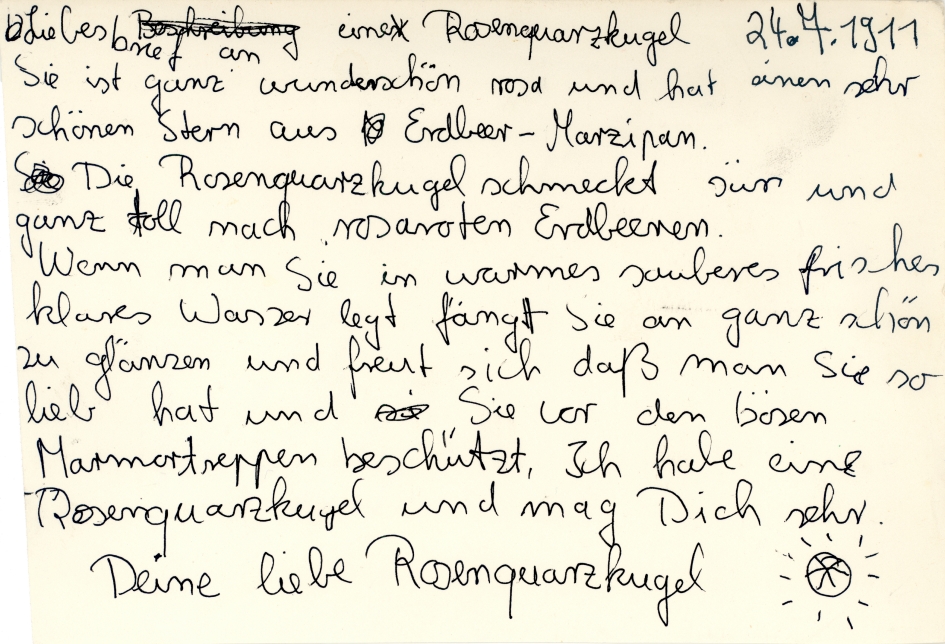 Liebesbrief an Beschreibung einer Rosenquarzkugel 24.7.1911
Sie ist ganz wunderschön rosa und hat einen sehr
schönen Stern aus Erdbeer-Marzipan.
Die Rosenquarzkugel schmeckt süss und
ganz toll nach rosaroten Erdbeeren.
Wenn man Sie in warmes sauberes frisches
klares Wasser legt fängt Sie an ganz schön
zu glänzen und freut sich daß man Sie so
lieb hat und sie Sie vor den bösen
Marmortreppen beschützt. Ich habe eine
Rosenquarzkugel und mag Dich sehr.
Deine liebe Rosenquarzkugel